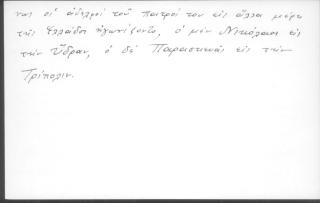 ναι οἱ ἀδελφοί τοῦ πατρός του εἰς ἄλλα μέρη
τῆς Ἑλλάδος ἠγωνίζοντο, ὁ μέν Νικόλαος εἰς
τήν Ὕδραν, ὁ δέ Παρασκευᾶς εἰς τήν
Τρίπολιν.